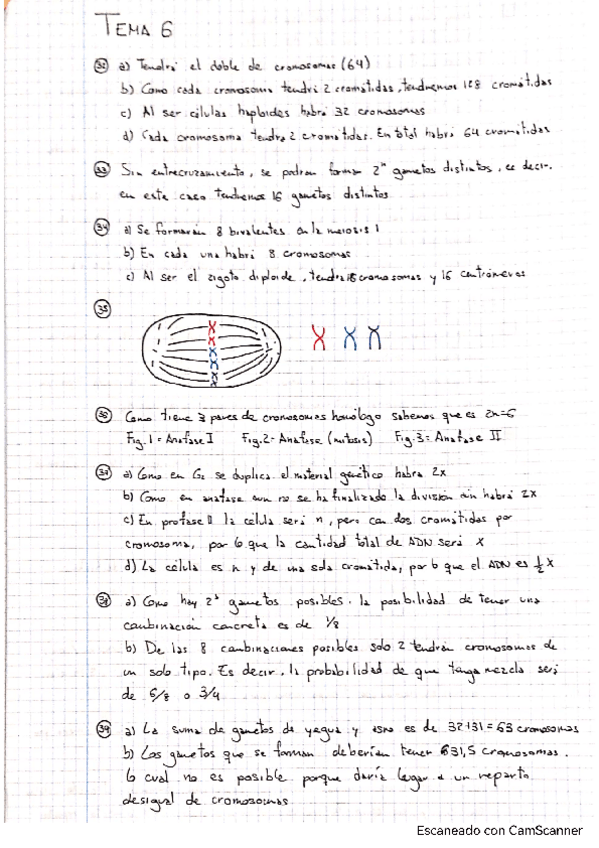 TEMA 6
32 a) Tendrá el doble de cromosomas (64)
b) Como cada cromosoma tendrá 2 cromátidas, tendremos 128 cromátidas
c) Al ser células haploides habrá 32 cromosomas
d) Cada cromosoma tendra 2 cromátidas. En total habrá 64 cromátidas
33 Sin entrecruzamiento, se podran formar 2ⁿ gametos distintos, es decir,
en este caso tendremos 16 gametos distintos
34 a) Se formarán 8 bivalentes en la meiosis I
b) En cada una habrá 8 cromosomas
c) Al ser el zigoto diploide, tendrá 16 cromosomas y 16 centrómeros
35
36 Como tiene 3 pares de cromosomas homólogo sabemos que es 2n=6
Fig. 1 = Anafase I Fig. 2 = Anafase (mitosis) Fig. 3 = Anafase II
37 a) Como en G2 se duplica el material genético habra 2x
b) Como en anafase aun no se ha finalizado la división aún habrá 2x
c) En profase II la célula será n, pero con dos cromátidas por
cromosoma, por lo que la cantidad total de ADN será x
d) La célula es n y de una sola cromátida, por lo que el ADN es ½ x
38 a) Como hay 2³ gametos posibles, la posibilidad de tener una
combinación concreta es de 1/8
b) De las 8 combinaciones posibles solo 2 tendrán cromosomas de
un solo tipo. Es decir, la probabilidad de que tenga mezcla será
de 6/8 o 3/4
39 a) La suma de gametos de yegua y asno es de 32+31 = 63 cromosomas
b) Los gametos que se forman deberían tener 31,5 cromosomas,
lo cual no es posible porque daría lugar a un reparto
desigual de cromosomas
Escaneado con CamScanner